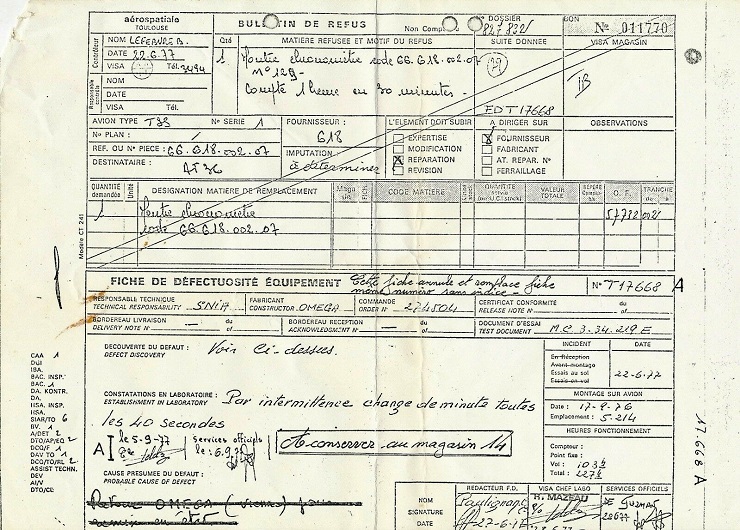 aérospatiale
TOULOUSE
BULLETIN DE REFUS
Non Comp
N° DOSSIER
827 832/
BON
N° 011770
NOM LEFEBVRE B.
DATE 22.6.77
VISA Tél. 3494
Qté
MATIERE REFUSEE ET MOTIF DU REFUS
SUITE DONNEE
VISA MAGASIN
1 Montre chronomètre code GG.G18.002.07
N° 129-
Compte 1 heure en 30 minutes-
EDT 17668
NOM
DATE
VISA Tél.
AVION TYPE T33 N° SERIE 1
N° PLAN : /
REF. OU N° PIECE : GG.G18.002.07
DESTINATAIRE : AT36
FOURNISSEUR :
G18
IMPUTATION
à déterminer
L'ELEMENT DOIT SUBIR
EXPERTISE
MODIFICATION
X REPARATION
REVISION
A DIRIGER SUR
X FOURNISSEUR
FABRICANT
AT. REPAR. N°
FERRAILLAGE
OBSERVATIONS
QUANTITE demandée
Unité
DESIGNATION MATIERE DE REMPLACEMENT
Magasin
CODE MATIERE
QUANTITE
VALEUR TOTALE
O. F.
TRANCHE
1 Montre chronomètre
code GG.G18.002.07
57732 002
Modèle CT 241
FICHE DE DÉFECTUOSITÉ ÉQUIPEMENT
Cette fiche annule et remplace fiche
même numéro sans indice-
N° T17668 A
RESPONSABLE TECHNIQUE
TECHNICAL RESPONSIBILITY SNIA
FABRICANT
CONSTRUCTOR OMEGA
COMMANDE
ORDER N° 274504
CERTIFICAT CONFORMITÉ
RELEASE NOTE N°
BORDEREAU LIVRAISON
DELIVERY NOTE N° du of
BORDEREAU RECEPTION
ACKNOWLEDGMENT N° du of
DOCUMENT D'ESSAI
TEST DOCUMENT M.C. 3.34.219 E
DECOUVERTE DU DEFAUT :
DEFECT DISCOVERY
Voir Ci-dessus.
INCIDENT DATE
En Réception
Avant montage
Essais au sol 22-6-77
Essais en vol
CONSTATATIONS EN LABORATOIRE :
ESTABLISHMENT IN LABORATORY
Par intermittence change de minute toutes
les 40 secondes
MONTAGE SUR AVION
Date : 17-9-76
Emplacement : 5-214
HEURES FONCTIONNEMENT
Compteur :
Point fixe :
Vol : 103 h
Total : 227 h
A le 5-9-77 services officiels
le : 6.9.77
A conserver au magasin 14
CAUSE PRESUMEE DU DEFAUT :
PROBABLE CAUSE OF DEFECT
Retour OMEGA
CAA 1
DGI
IBA.
BAC. INSP.
BAC. 1
DA. KONTR.
DA.
HSA. INSP.
HSA.
SIAR/TO 6
BV. 1
A/DET 2
DTO/AP/EQ 2
DCQ/F 1
DAV TO 1
DCQ/TO/RL 2
ASSIST. TECHN.
DEV
AI/V
DTO/CE
NOM
SIGNATURE
REDACTEUR F.D.
VISA CHEF LABO
SERVICES OFFICIELS
R. MAZEAU
DE GUZMAN
17.668 A